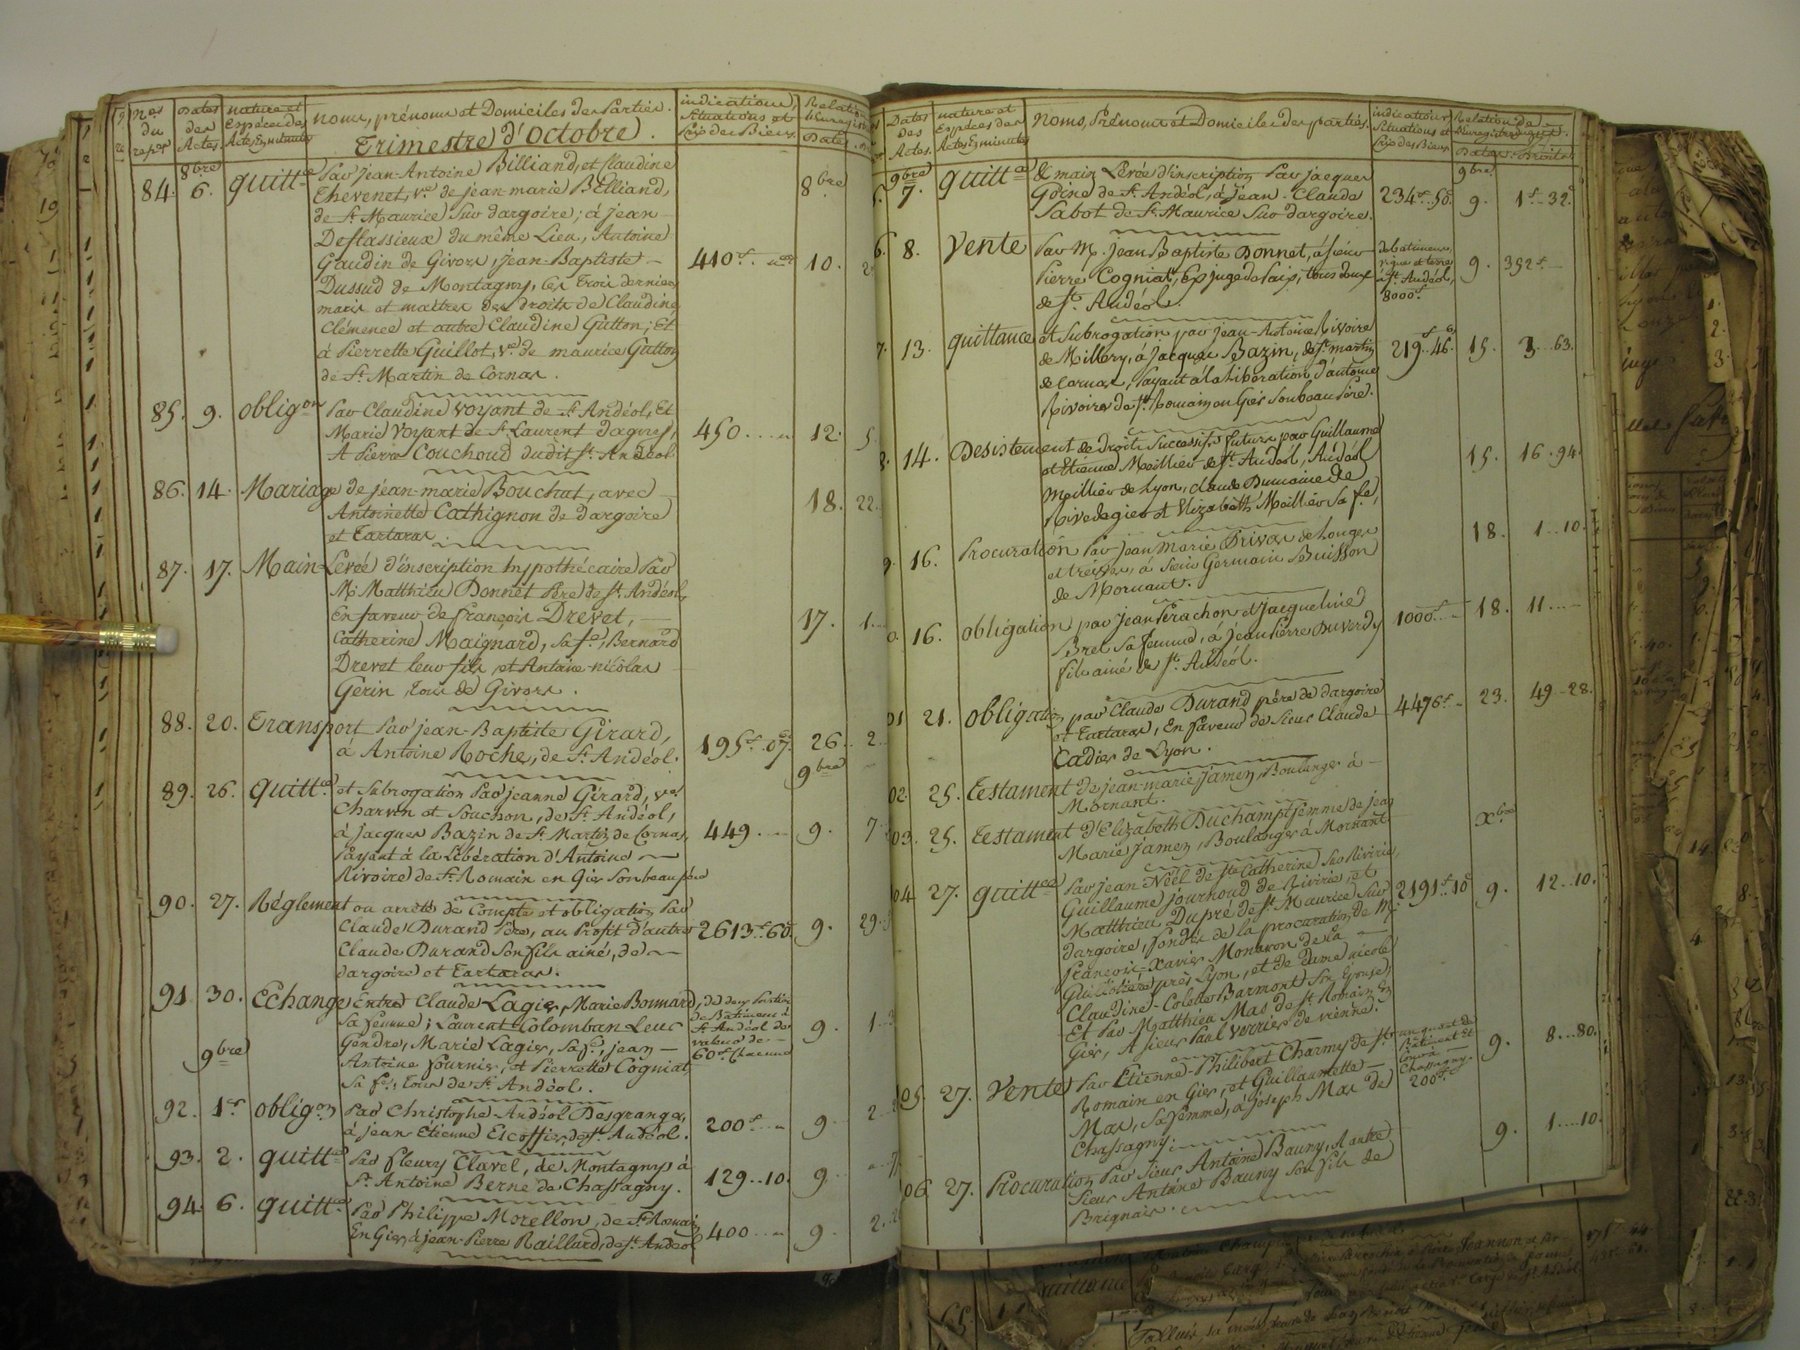 Nos du reper
Dates des Actes
nature et Espèces des Actes En minutes
noms, prénoms et Domiciles des Parties.
Trimestre d'octobre.
indications, Situations et Prix des Biens
Dates
8bre
84. 6. quittce Par Jean-Antoine Billiand, et Claudine
Thevenet, ve de jean-marie Billiand,
de St Maurice Sur dargoire; à jean
Deflassieux du même Lieu, Antoine
Gaudin de Givors, Jean-Baptiste
Dussud de Montagny, les trois derniers
maris et maîtres des droits de Claudine,
Clémence et autre Claudine Gutton; Et
à Pierrette Guillot, ve de maurice Gutton
de St Martin de Cornas.
410f
8bre
10.
85. 9. obligon Par Claudine Voyant de St Andéol, Et
Marie Voyant de St Laurent dagny,
A Pierre Couchoud dudit St Andéol
450
12.
86. 14. Mariage de jean-marie Bouchut, avec
Antoinette Cathignon de dargoire
et Tartaras.
18. 22
87. 17. Main-Levée d'inscription hypothécaire Par
Me Matthieu Donnet Père de St Andéol,
En faveur de françois Drevet,
Catherine Maignard, sa fe, Bernard
Drevet leur fils, et Antoine-nicolas
Gerin, tous de Givors.
17. 1
88. 20. Transport Par jean-Baptiste Girard,
à Antoine Roche, de St Andéol.
195f..07c
26. 2
9bre
89. 26. quittce et Subrogation Par jeanne Girard, ve
Charvin et Souchon, de St Andéol,
à jacques Bazin de St Martin de Cornas,
Payant à la Libération d'Antoine
Rivoire de St Romain en Gier Son beau père
449
9. 7
90. 27. Réglement ou arrêté de Compte et obligation Par
Claude Durand Père, au Profit d'autre
Claude Durand Son fils ainé, de
dargoire et Tartaras.
2613f..60c
9. 29
91 30. Echange Entre Claude Lagier, Marie Bonnard,
Sa femme; Laurent Colomban Leur
Gendre, Marie Lagier, Sa fe, jean
Antoine fournier, et Pierrette Cogniat,
Sa fe, tous de St Andéol.
de deux Portions
de Bâtiments à
St Andéol de
valeur de
60f Chacune
9. 1
9bre
92. 1er obligon Par Christophe-Andéol Desgranges,
à jean Etienne Escoffier de St Andéol.
200f
9. 2
93. 2. quittce Par fleury Clavel, de Montagny à
St Antoine Berne de Chassagny.
129..10.
9
94. 6. quittce Par Philippe Morellon, de St Romain
En Gier, à jean-Pierre Raillard, de St Andéol
400
9. 2
Dates des Actes.
nature et Espèces des Actes En minutes
Noms, Prénoms et Domiciles des parties.
indications Situations et Prix des Biens
Relation de l'Enregistrement.
Dates. Droits
9bre
7. quittce & main Levée d'inscription Par jacques
Gdine de St Andéol, à Jean-Claude
Sabot de St Maurice Sur dargoire.
234f..50c
9bre
9. 1f..32c
8. Vente Par M. Jean Baptiste Donnet, à sieur
Pierre Cogniat, Ex juge de Paix, tous deux
de St Andéol.
de batiments,
vigne et terre
à St Andéol,
8000f
9. 352f
13. quittance et Subrogation par jean-Antoine Rivoire
de Millery, à Jacques Bazin, de St martin
de Cornas, Payant à la Libération d'antoine
Rivoire de St Romain en Gier Son beau Père.
219f..46c
15. 3..63.
14. Desistement de droits Successifs futurs par Guillaume
et Etienne Meillier de St Andéol, Andéol
Meillier de Lyon, claude Dumaine de
Rivedegier et Elizabeth Meillier sa fe,
15. 16..94
16. Procuration Par Jean Marie Trivas de Longes
et treives, à Sieur Germain Buisson
de Mornant.
18. 1..10.
16. obligation par Jean Perachon et Jacqueline
Brel Sa femme, à jean Pierre Duverdy
fils ainé de St Andéol.
1000f
18. 11
01 21. obligation par Claude Durand père de dargoire
et Tartaras, En faveur de Sieur Claude
Cadier de Lyon.
4476f
23. 49..28.
02. 25. Testament de jean-marie jamen, Boulanger à
Mornant.
03. 25. Testament d'Elizabeth Duchamp femme de jean
Marie jamen, Boulanger à Mornant
xbre
04 27. quittce Par jean Néel de Ste Catherine Sur Riviere,
Guillaume journoud de Rivirie, et
Matthieu Dupré de St Maurice Sur
dargoire, fondés de la procuration de Mr
françois-Xavier Monavon de la
Guillotière, près Lyon, et de dame nicole
Claudine-Colette Barmont Son Epouse,
Et Par Matthieu Mas, de St Romain En
Gier, A sieur Paul Verrier de vienne.
2191f..10c
9. 12..10.
05. 27. Vente Par Etienne-Philibert Charmy de St
Romain en Gier, et Guillaumette
Mas, Sa femme, à Joseph Mas de
Chassagny.
un quart de
Bâtiment et
Cour à
Chassagny
200f
9. 8..80.
06. 27. Procuration Par Sieur Antoine Bauny, A autre
Sieur Antoine Bauny Son fils de
Brignais.
9. 1..10.